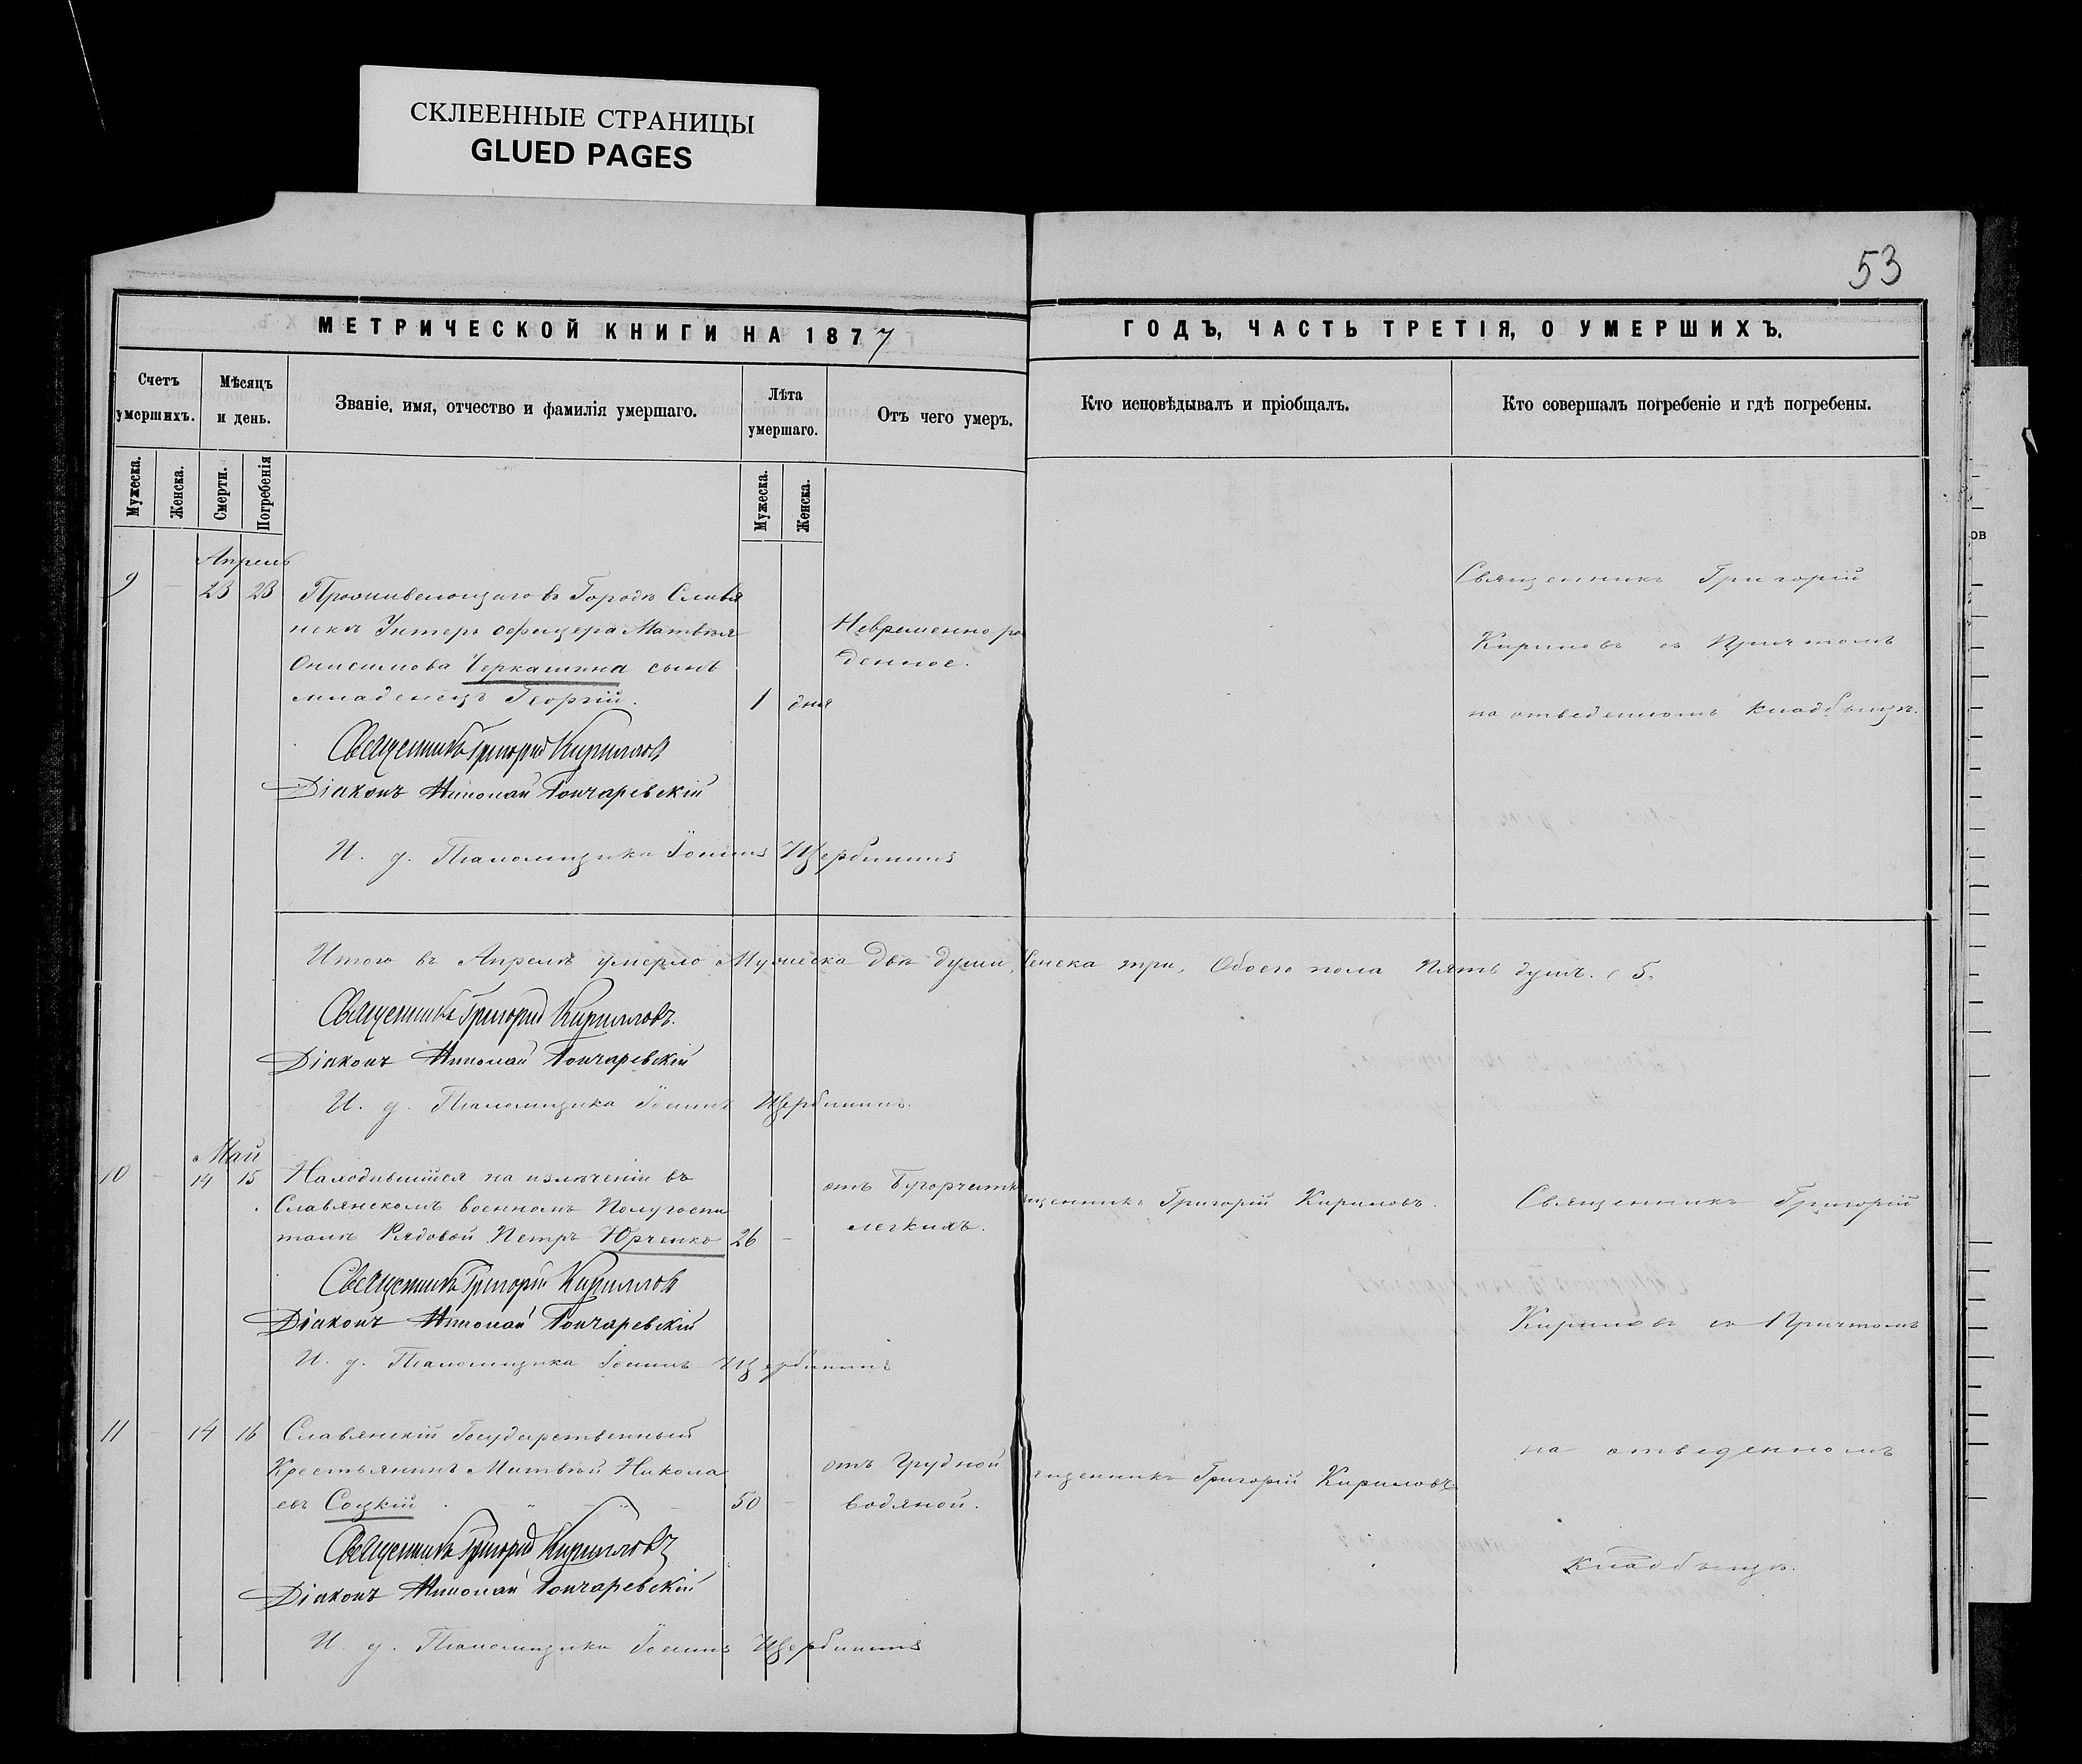 СКЛЕЕННЫЕ СТРАНИЦЫ
GLUED PAGES
53
МЕТРИЧЕСКОЙ КНИГИ НА 1877
ГОДЪ, ЧАСТЬ ТРЕТІЯ, О УМЕРШИХЪ.
Счетъ умершихъ.
Мѣсяцъ и день.
Званіе, имя, отчество и фамилія умершаго.
Лѣта умершаго.
Отъ чего умеръ.
Кто исповѣдывалъ и пріобщалъ.
Кто совершалъ погребеніе и гдѣ погребены.
Мужеска.
Женска.
Смерти.
Погребенія
Мужеска.
Женска.
Апрель
9 - 23 23
Проживающаго въ Городѣ Славя
нскѣ Унтеръ офицера Матвѣя
Онисимова Черкашина сынъ
младенецъ Георгій.
1 дня
Невременно ро
денное.
Священникъ Григорій
Кириловъ съ Причтомъ
на отведенномъ кладбищѣ.
Священникъ Григорій Кирилловъ
Діаконъ Николай Гончаревскій
И. д. Псаломщика Іоаннъ Щербининъ
Итого въ Апрелѣ умерло Мужеска двѣ души, Женска три, Обоего пола Пять душъ. (5.
Священникъ Григорій Кирилловъ.
Діаконъ Николай Гончаревскій
И. д. Псаломщика Іоаннъ Щербининъ.
Май
10 - 14 15
Находившійся на излѣченіи въ
Славянскомъ военномъ Полугоспи
талѣ Рядовой Петръ Юрченко
26 -
отъ Бугорчатк
легкихъ.
щенникъ Григорій Кириловъ.
Священникъ Григорій
Священникъ Григорій Кирилловъ
Діаконъ Николай Гончаревскій
И. д. Псаломщика Іоаннъ Щербининъ
Кириловъ съ Причтомъ
11 - 14 16
Славянскій Государственный
Крестьянинъ Матвѣй Никола
евъ Соцкій
50 -
отъ Грудной
водяной.
щенникъ Григорій Кириловъ
на отведенномъ
кладбищѣ.
Священникъ Григорій Кирилловъ
Діаконъ Николай Гончаревскій
И. д. Псаломщика Іоаннъ Щербининъ